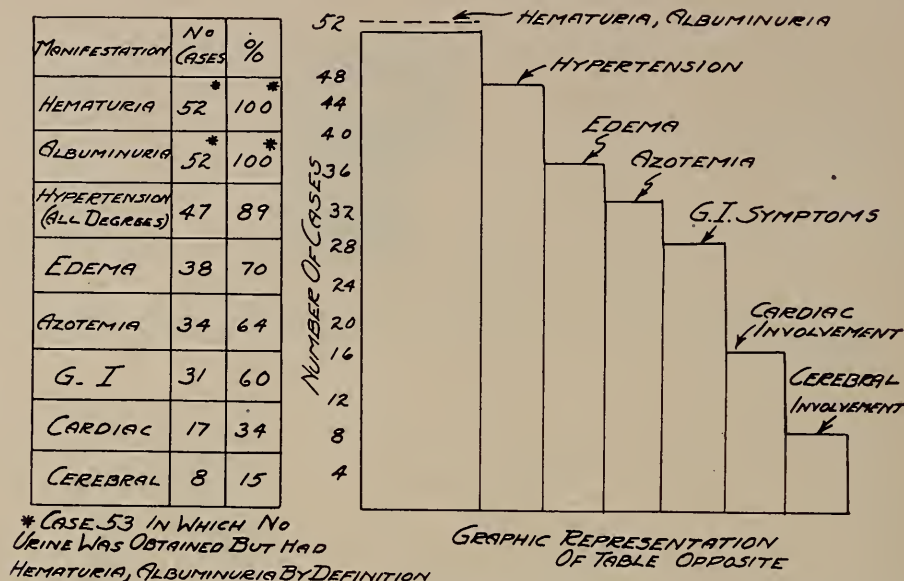 MANIFESTATION No CASES %
HEMATURIA 52* 100*
ALBUMINURIA 52* 100*
HYPERTENSION (ALL DEGREES) 47 89
EDEMA 38 70
AZOTEMIA 34 64
G. I 31 60
CARDIAC 17 34
CEREBRAL 8 15
* CASE 53 IN WHICH NO
URINE WAS OBTAINED BUT HAD
HEMATURIA, ALBUMINURIA BY DEFINITION
NUMBER OF CASES
52
48
44
40
36
32
28
24
20
16
12
8
4
HEMATURIA, ALBUMINURIA
HYPERTENSION
EDEMA
AZOTEMIA
G.I. SYMPTOMS
CARDIAC
INVOLVEMENT
CEREBRAL
INVOLVEMENT
GRAPHIC REPRESENTATION
OF TABLE OPPOSITE